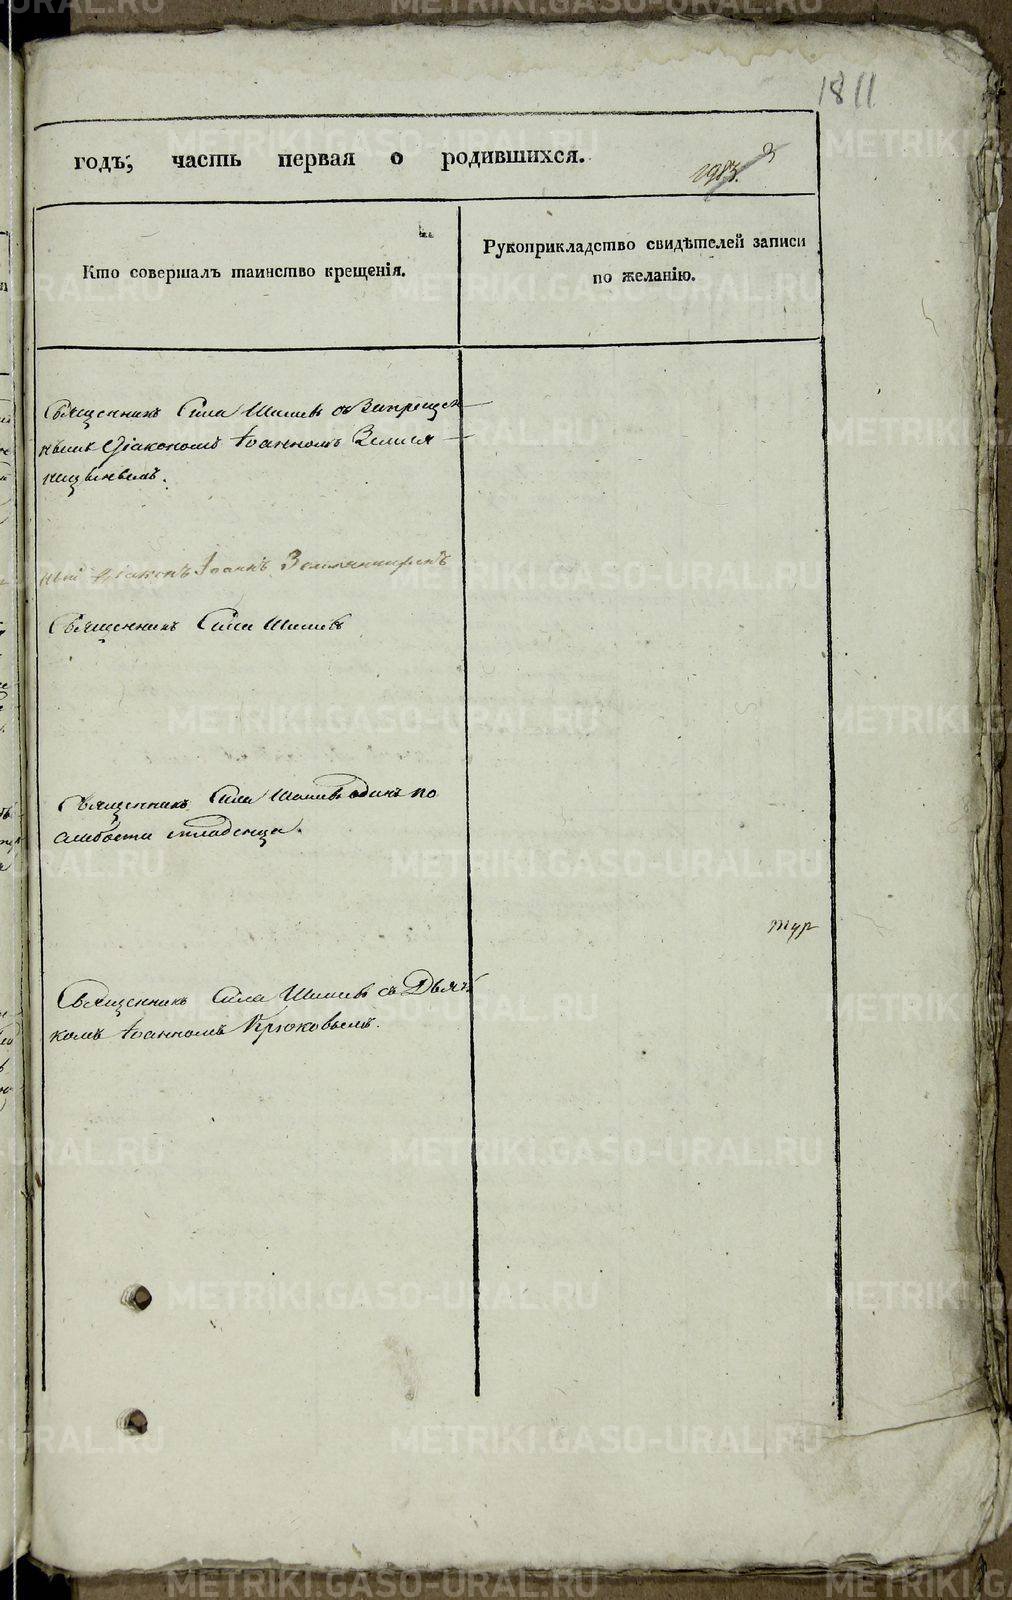 1811
годъ, часть первая о родившихся.
Кто совершалъ таинство крещенія.
Рукоприкладство свидѣтелей записи
по желанію.
Священникъ Сила Шишевъ съ Запрещен
нымъ Діакономъ Іоанномъ Землян
ицынымъ.
ный Діаконъ Іоаннъ Земляницынъ
Священникъ Сила Шишевъ
Священникъ Сила Шишевъ одинъ по
слабости младенца.
тур
Священникъ Сила Шишевъ съ Дьяч
комъ Іоанномъ Крюковымъ.
METRIKI.GASO-URAL.RU